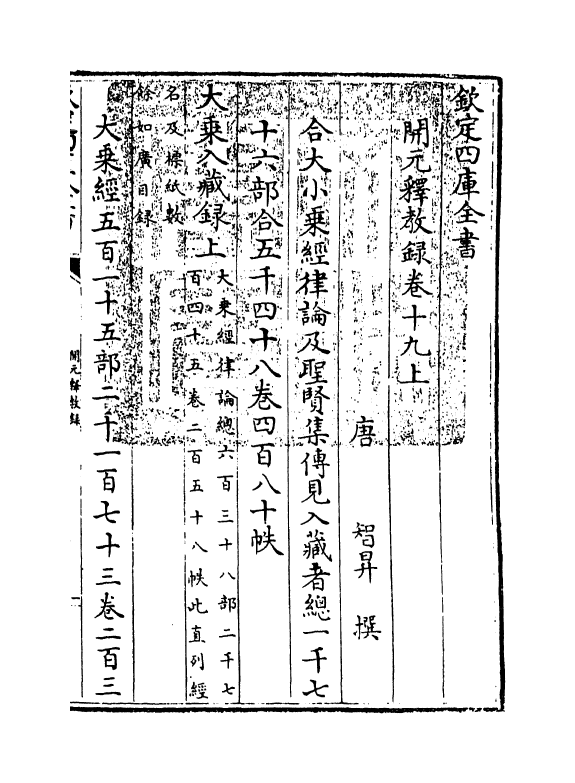 欽定四庫全書
開元釋教録卷十九上
唐　智昇　撰
合大小乘經律論及聖賢集傳見入藏者總一千七
十六部合五千四十八卷四百八十帙
大乘入藏録上
大乘經律論總六百三十八部二千七
百四十五卷二百五十八帙此直列經
名及標紙數
餘如廣目録
大乘經五百一十五部二十一百七十三卷二百三
開元釋教録